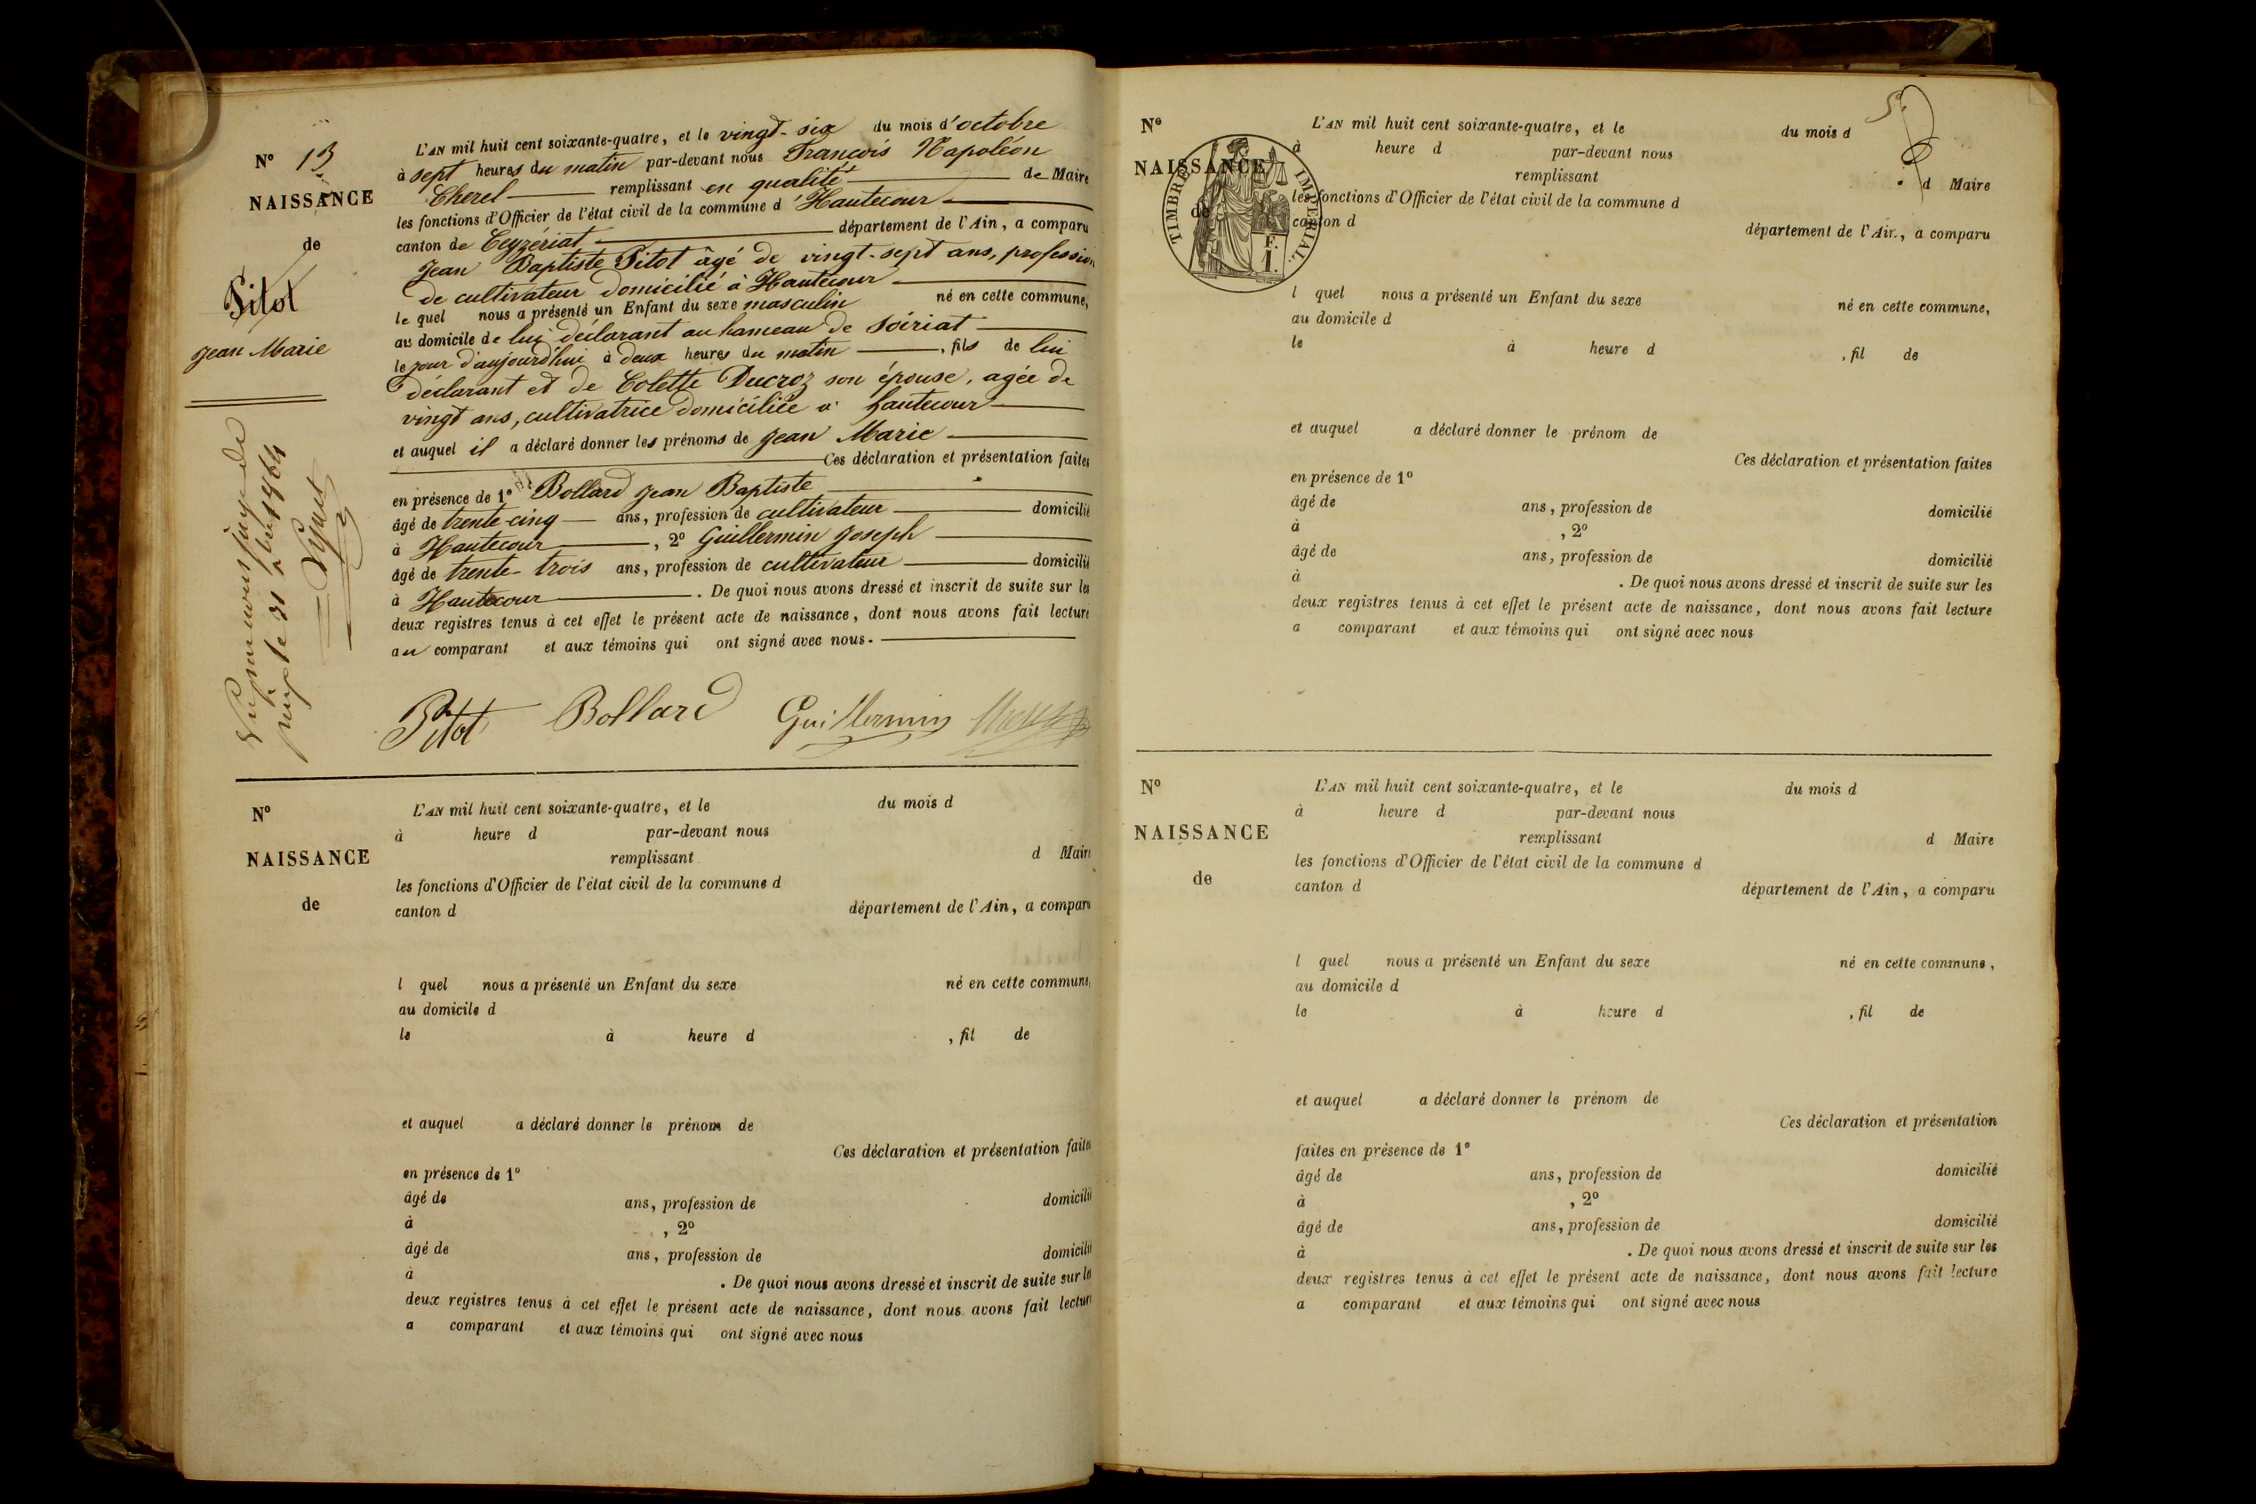 N° 13
NAISSANCE
de
Pitot
Jean Marie
L'AN mil huit cent soixante-quatre, et le vingt-six du mois d'octobre
à sept heures du matin par-devant nous François Napoléon
Cherel remplissant en qualité de Maire
les fonctions d'Officier de l'état civil de la commune d'Hautecour
canton de Ceyzériat département de l'Ain, a comparu
Jean Baptiste Pitot âgé de vingt-sept ans, profession
de cultivateur domicilié à Hautecour
le quel nous a présenté un Enfant du sexe masculin né en cette commune,
au domicile de lui déclarant au hameau de Soiriat
le jour d'aujourd'hui à deux heures du matin, fils de lui
déclarant et de Colette Ducroz son épouse, agée de
vingt ans, cultivatrice domiciliée à hautecour
et auquel il a déclaré donner les prénoms de Jean Marie
Ces déclaration et présentation faites
en présence de 1° Bollard Jean Baptiste
âgé de trente-cinq ans, profession de cultivateur domicilié
à Hautecour, 2° Guillermin Joseph
âgé de trente-trois ans, profession de cultivateur domicilié
à Hautecour. De quoi nous avons dressé et inscrit de suite sur les
deux registres tenus à cet effet le présent acte de naissance, dont nous avons fait lecture
au comparant et aux témoins qui ont signé avec nous.
Pitot Bollard Guillermin
N°
NAISSANCE
de
L'AN mil huit cent soixante-quatre, et le du mois d
à heure d par-devant nous
remplissant d Maire
les fonctions d'Officier de l'état civil de la commune d
canton d département de l'Ain, a comparu
l quel nous a présenté un Enfant du sexe né en cette commune,
au domicile d
le à heure d , fil de
et auquel a déclaré donner le prénom de
Ces déclaration et présentation faites
en présence de 1°
âgé de ans, profession de domicilié
à , 2°
âgé de ans, profession de domicilié
à . De quoi nous avons dressé et inscrit de suite sur les
deux registres tenus à cet effet le présent acte de naissance, dont nous avons fait lecture
a comparant et aux témoins qui ont signé avec nous
N°
NAISSANCE
de
TIMBRE IMPERIAL.
F.
1.
L'AN mil huit cent soixante-quatre, et le du mois d
à heure d par-devant nous
remplissant d Maire
les fonctions d'Officier de l'état civil de la commune d
canton d département de l'Ain, a comparu
l quel nous a présenté un Enfant du sexe né en cette commune,
au domicile d
le à heure d , fil de
et auquel a déclaré donner le prénom de
Ces déclaration et présentation faites
en présence de 1°
âgé de ans, profession de domicilié
à , 2°
âgé de ans, profession de domicilié
à . De quoi nous avons dressé et inscrit de suite sur les
deux registres tenus à cet effet le présent acte de naissance, dont nous avons fait lecture
a comparant et aux témoins qui ont signé avec nous
N°
NAISSANCE
de
L'AN mil huit cent soixante-quatre, et le du mois d
à heure d par-devant nous
remplissant d Maire
les fonctions d'Officier de l'état civil de la commune d
canton d département de l'Ain, a comparu
l quel nous a présenté un Enfant du sexe né en cette commune,
au domicile d
le à heure d , fil de
et auquel a déclaré donner le prénom de
Ces déclaration et présentation
faites en présence de 1°
âgé de ans, profession de domicilié
à , 2°
âgé de ans, profession de domicilié
à . De quoi nous avons dressé et inscrit de suite sur les
deux registres tenus à cet effet le présent acte de naissance, dont nous avons fait lecture
a comparant et aux témoins qui ont signé avec nous